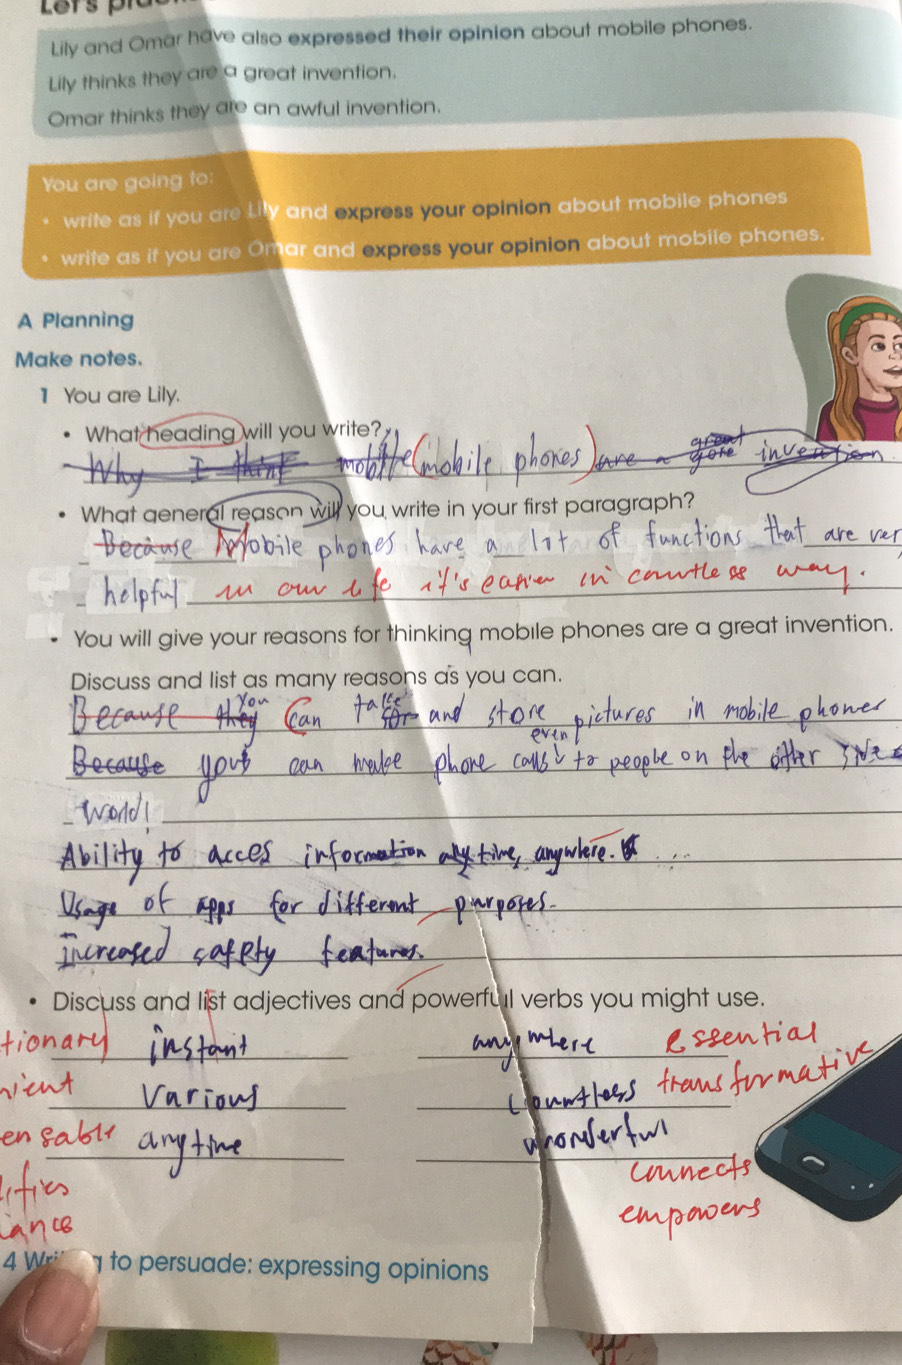 Let's
Lily and Omar have also expressed their opinion about mobile phones.
Lily thinks they are a great invention.
Omar thinks they are an awful invention.
You are going to:
• write as if you are Lily and express your opinion about mobile phones
• write as if you are Omar and express your opinion about mobile phones.
A Planning
Make notes.
1 You are Lily.
• What heading will you write?
Why I think mobile (mobile phones) are a great invention
• What general reason will you write in your first paragraph?
Because Mobile phones have a lot of functions that are ver
helpful in our life it's easier in countless way.
• You will give your reasons for thinking mobile phones are a great invention.
Discuss and list as many reasons as you can.
Because they You Can take and store pictures in mobile phones
Because you can make phone calls even to people on the other
world!
Ability to acces information any time, anywhere.
Usage of apps for different purposes.
increased safety features.
• Discuss and list adjectives and powerful verbs you might use.
tionary instant anywhere essential
nient various countless transformative
ensable anytime wonderful
connects
empowers
4 Wri g to persuade: expressing opinions